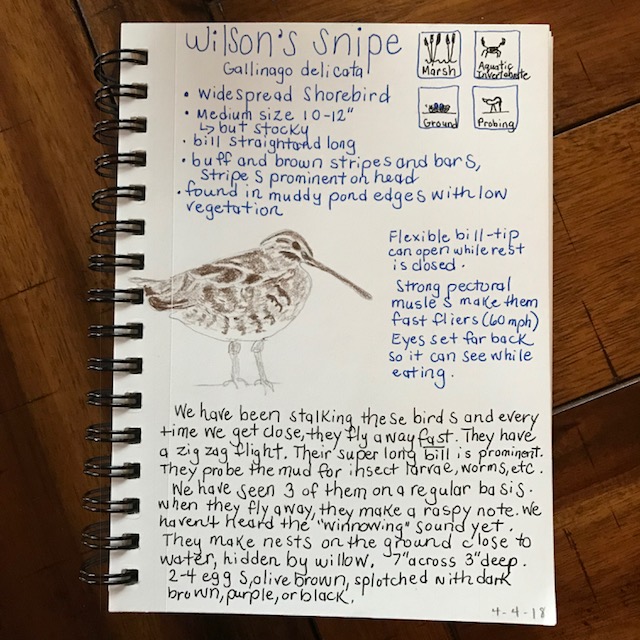 Wilson's Snipe
Gallinago delicata
Marsh
Aquatic
Invertebrate
Ground
Probing
• Widespread Shorebird
• Medium size 10-12"
↳ but stocky
• bill straight and long
• buff and brown stripes and bars,
stripes prominent on head
• found in muddy pond edges with low
vegetation
Flexible bill-tip
can open while rest
is closed.
Strong pectoral
musles make them
fast fliers (60 mph)
Eyes set far back
so it can see while
eating.
We have been stalking these birds and every
time we get close, they fly away fast. They have
a zig zag flight. Their super long bill is prominent.
They probe the mud for insect larvae, worms, etc.
We have seen 3 of them on a regular basis.
when they fly away, they make a raspy note. We
haven't heard the "winnowing" sound yet.
They make nests on the ground close to
water, hidden by willow. 7" across 3" deep.
2-4 eggs, olive brown, splotched with dark
brown, purple, or black.
4-4-18